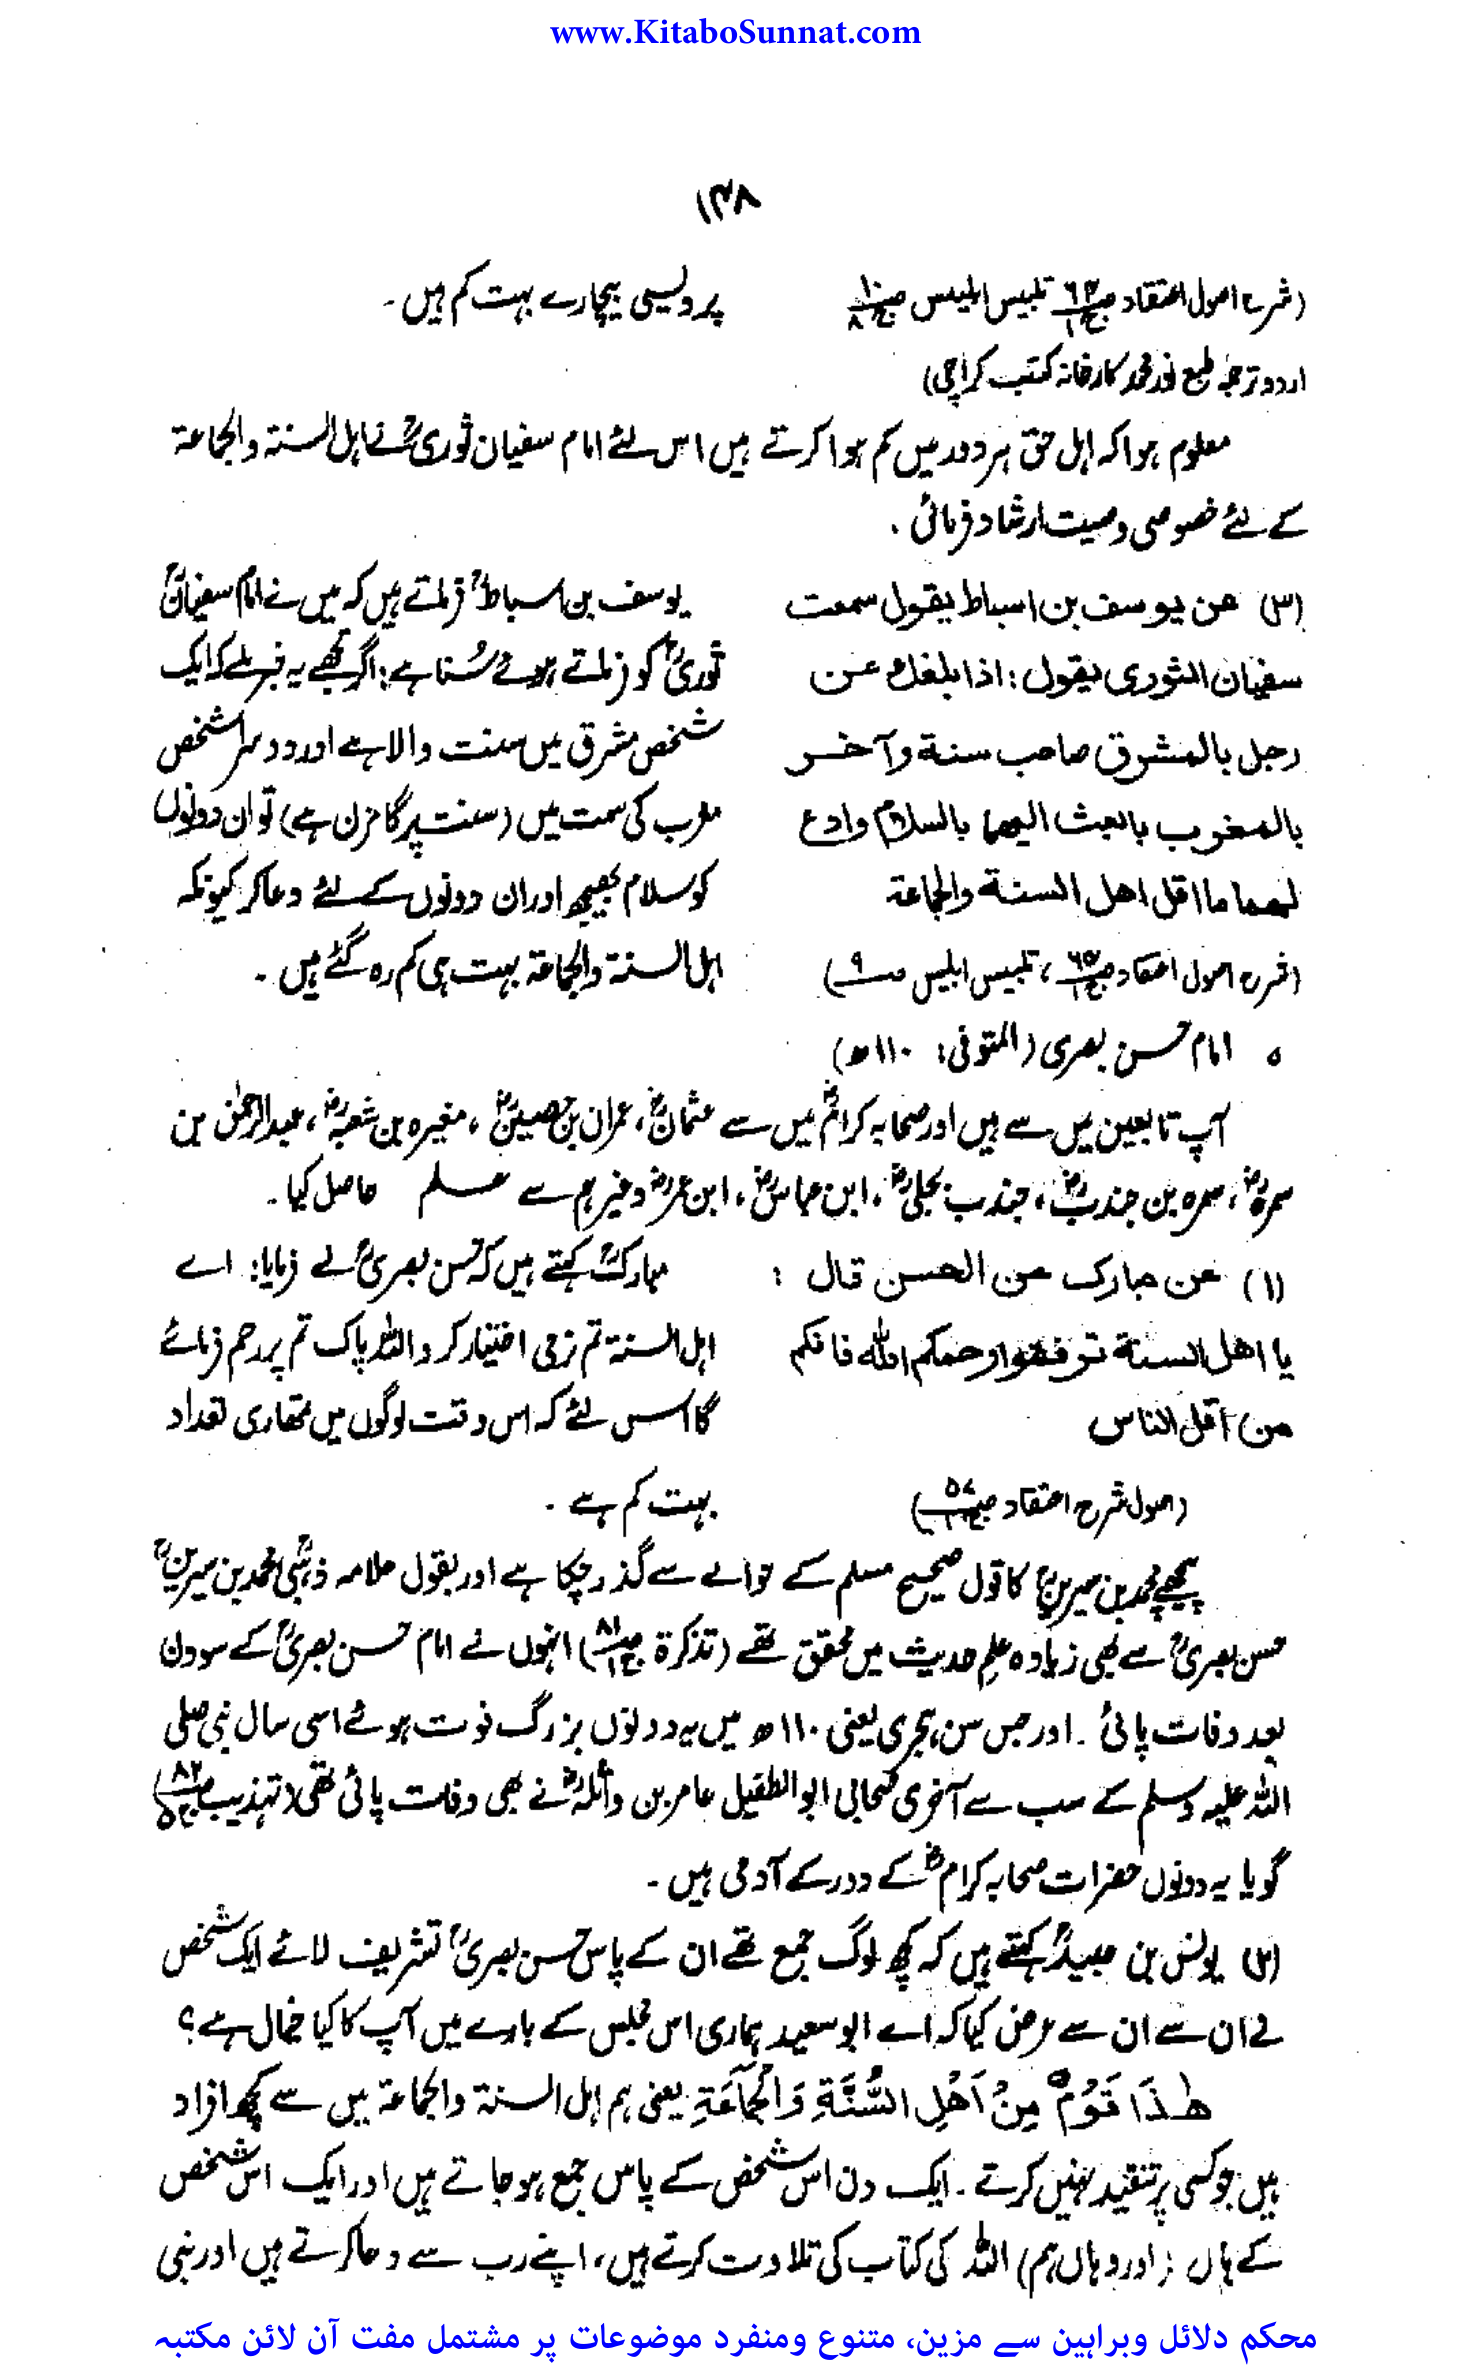 www.KitaboSunnat.com
۱۳۸
(شرح اصول اعتقاد ص۶۴ ج۱ تلبیس ابلیس ص۱۰ ج۸
پردیسی بیچارے بہت کم ہیں۔
اردو ترجمہ طبع نور محمد کارخانہ کتب کراچی)
معلوم ہوا کہ اہل حق ہر دور میں کم ہوا کرتے ہیں اس لئے امام سفیان ثوریؒ نے اہل السنۃ والجماعۃ
کے لئے خصوصی وصیت ارشاد فرمائی ۔
(۳) عن یوسف بن اسباط یقول سمعت
سفیان الثوری یقول : اذا بلغك عن
رجل بالمشرق صاحب سنة وآخر
بالمغرب بابعث الیھما بالسلام وادع
لھما ما اقل اھل السنة والجماعة
(شرح اصول اعتقاد ص۶۵ ج۱ ، تلبیس ابلیس ص۹)
یوسف بن اسباطؒ فرماتے ہیں کہ میں نے امام سفیانؒ
ثوریؒ کو فرماتے ہوئے سُنا ہے : اگر تجھے یہ خبر ملے کہ ایک
شخص مشرق میں سنت والا ہے اور دوسرا شخص
مغرب کی سمت میں (سنت پر گامزن ہے) تو ان دونوں
کو سلام بھیج اور ان دونوں کے لئے دعا کر کیونکہ
اہل السنۃ والجماعۃ بہت ہی کم رہ گئے ہیں ۔
ہ امام حسن بصری (المتوفی : ۱۱۰ھ)
آپ تابعین میں سے ہیں اور صحابہ کرامؓ میں سے عثمانؓ ، عمران بن حصینؓ ، مغیرہ بن شعبہؓ ، عبدالرحمٰن بن
سمرہؓ ، سمرہ بن جندبؓ ، جندب بجلیؓ ، ابن عباسؓ ، ابن عمرؓ وغیرہم سے علم حاصل کیا ۔
(۱) عن مبارک عن الحسن قال :
یا اھل السنة ترفقوا رحمکم اللہ فانکم
من اقل الناس
(اصول شرح اعتقاد ص۵۷ ج۱)
مبارکؒ کہتے ہیں کہ حسن بصریؒ نے فرمایا : اے
اہل السنۃ تم نرمی اختیار کرو اللہ پاک تم پر رحم فرمائے
گا اس لئے کہ اس وقت لوگوں میں تمھاری تعداد
بہت کم ہے ۔
پیچھے محمد بن سیرینؒ کا قول صحیح مسلم کے حوالے سے گذر چکا ہے اور بقول علامہ ذہبیؒ محمد بن سیرینؒ
حسن بصریؒ سے بھی زیادہ علمِ حدیث میں محقق تھے (تذکرۃ ص۸۱ ج۱) انہوں نے امام حسن بصریؒ کے سو دن
بعد وفات پائی ۔ اور جس سن ہجری یعنی ۱۱۰ھ میں یہ دونوں بزرگ فوت ہوئے اسی سال نبی صلی
اللہ علیہ وسلم کے سب سے آخری صحابی ابو الطفیل عامر بن واثلہؓ نے بھی وفات پائی تھی (تہذیب ص۸۲ ج۵)
گویا یہ دونوں حضرات صحابہ کرامؓ کے دور کے آدمی ہیں ۔
(۲) یونس بن عبیدؒ کہتے ہیں کہ کچھ لوگ جمع تھے ان کے پاس حسن بصریؒ تشریف لائے ایک شخص
نے ان سے ان سے عرض کیا کہ اے ابو سعید ہماری اس مجلس کے بارے میں آپ کا کیا خیال ہے ؟
ھٰذَا قَوْمٌ مِنْ اَھْلِ السُّنَّةِ وَالْجَمَاعَةِ یعنی ہم اہل السنۃ والجماعۃ میں سے کچھ افراد
ہیں جو کسی پر تنقید نہیں کرتے ۔ ایک دن اس شخص کے پاس جمع ہو جاتے ہیں اور ایک اس شخص
کے ہاں (اور وہاں ہم) اللہ کی کتاب کی تلاوت کرتے ہیں ، اپنے رب سے دعا کرتے ہیں اور نبی
محکم دلائل وبراہین سے مزین، متنوع ومنفرد موضوعات پر مشتمل مفت آن لائن مکتبہ